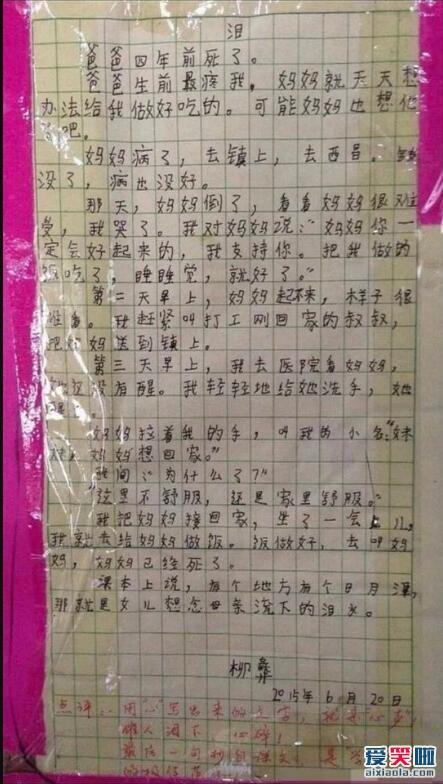 泪
爸爸四年前死了。
爸爸生前最疼我，妈妈就天天想
办法给我做好吃的。可能妈妈也想他
了吧。
妈妈病了，去镇上，去西昌。钱
没了，病也没好。
那天，妈妈倒了，看看妈妈很难
受，我哭了。我对妈妈说：“妈妈你一
定会好起来的，我支持你。把我做的
饭吃了，睡睡觉，就好了。”
第二天早上，妈妈起不来，样子很
难看。我赶紧叫打工刚回家的叔叔，
把妈妈送到镇上。
第三天早上，我去医院看妈妈，
她还没有醒。我轻轻地给她洗手，她
妈妈拉着我的手，叫我的小名：“妹
妹，妈妈想回家。”
我问：“为什么了？”
“这里不舒服，还是家里舒服。”
我把妈妈接回家，坐了一会儿，
我就去给妈妈做饭。饭做好，去叫妈
妈，妈妈已经死了。
课本上说，有个地方有个日月潭，
那就是女儿想念母亲流下的泪水。
柳彝
2015年6月20日
点评：用“心”写出来的文字，
催人泪下，心碎！
最后一句
爱笑啦
aixiaola.com